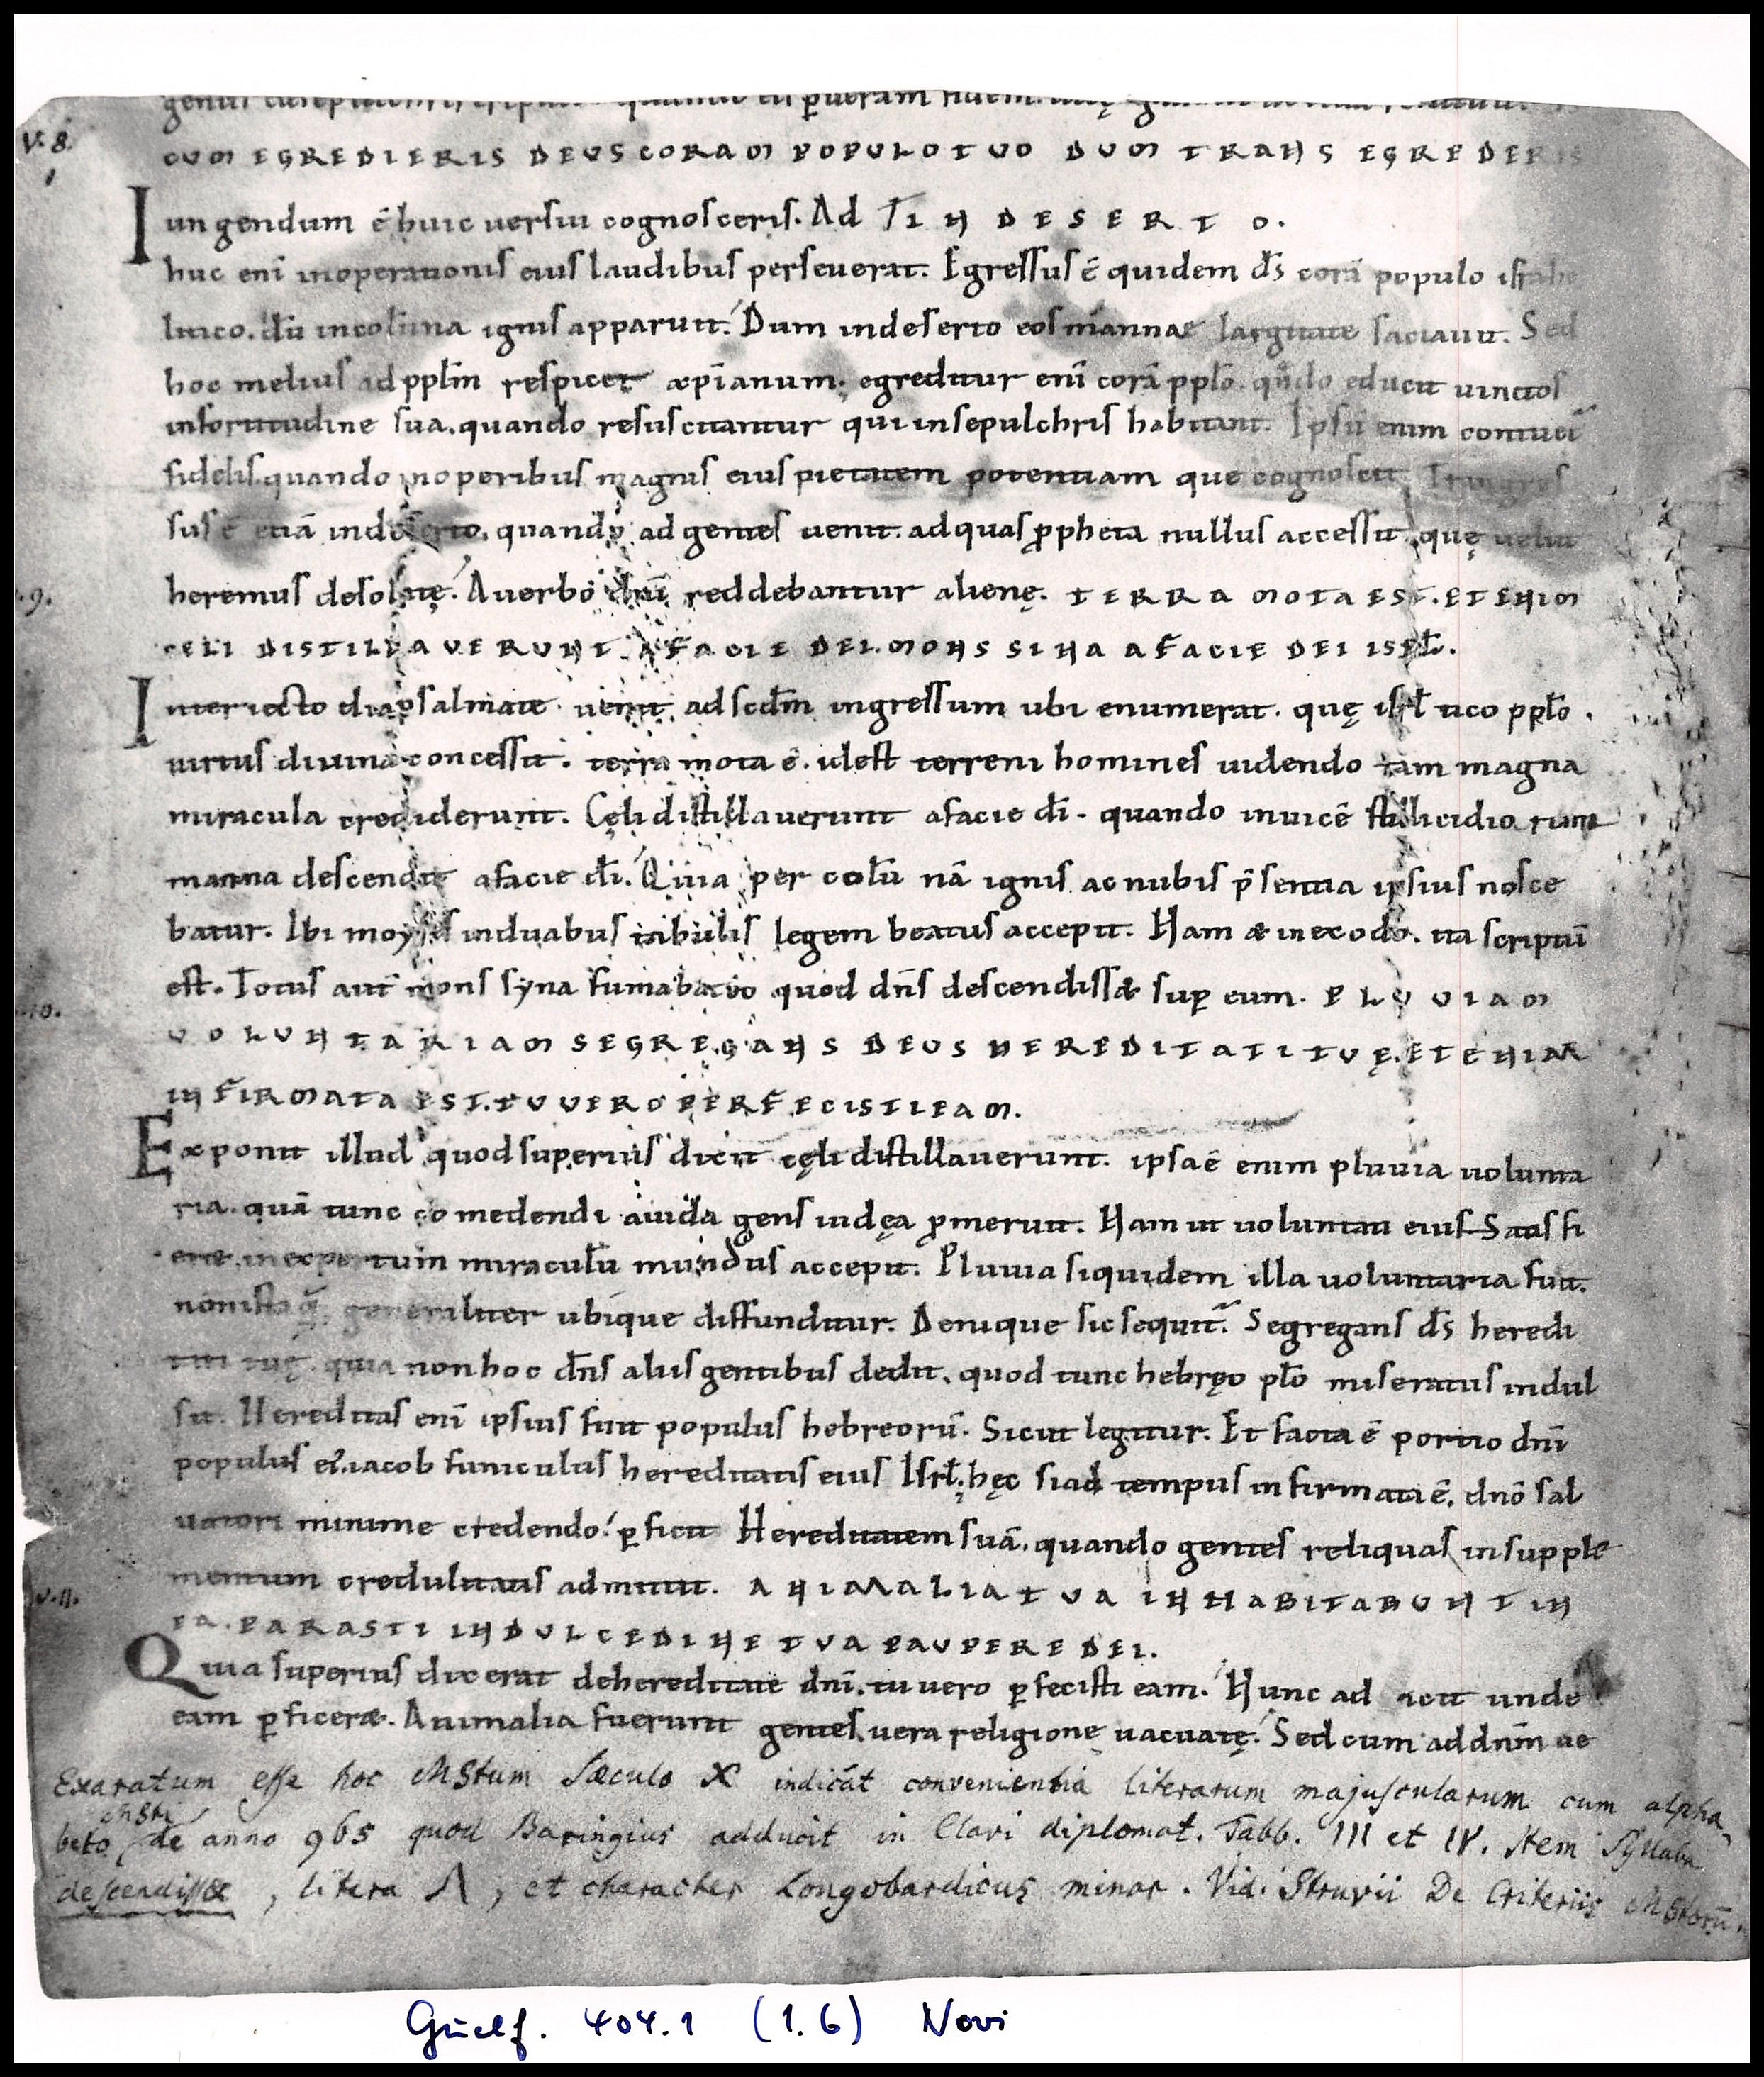 V. 8.
CUM EGREDIERIS DEUS CORAM POPULO TUO DUM TRANS EGREDERIS
Iungendum ē huic uersui cognosceris. Ad TIN DESERTO.
huc eni in operationis eius laudibus perseuerat. Egressus ē quidem d̄s corā populo israhe
litico. dū in colūna ignis apparuit. Dum in deserto eos mannae largitate saciauit. Sed
hoc melius ad pplm̄ respicet xp̄ianum. egreditur enī corā pplō. qn̄do educit uinctos
in fortitudine sua. quando resuscitantur qui in sepulchris habitant. Ipsū enim contuet̄
fidelis. quando in operibus magnis eius pietatem potentiam que cognoscit. Transgres
sus ē etiā in deserto. quando ad gentes uenit. ad quas ꝓpheta nullus accessit. quę uelut
9.
heremus desolatę. A uerbo dn̄i reddebantur alienę. TERRA MOTA EST. ETENIM
CELI DISTILLAVERUNT A FACIE DEI. MONS SINA A FACIE DEI ISRL̄.
Interiecto diapsalmate uenit ad scdm̄ ingressum ubi enumerat. quę isrl̄ tico pplō.
uirtus diuina concessit. terra mota ē. id est terreni homines uidendo tam magna
miracula crediderunt. Cęli distillauerunt a facie dī. quando in uicē stillicidiorum
manna descendit a facie dī. Quia per colū nā ignis ac nubis p̄sentia ipsius nosce
batur. Ibi moyses in duabus tabulis legem beatus accepit. Nam & in exodo. ita scriptū
10.
est. Totus aut̄ mons syna fumabat eo quod dn̄s descendiss& sup̱ eum. PLUUIAM
VOLUNTARIAM SEGREGANS DEUS HEREDITATI TUĘ. ETENIM
INFIRMATA EST. TU UERO PERFECISTI EAM.
Exponit illud quod superius dixit cęli distillauerunt. ipsa ē enim pluuia uolunta
ria. quā tunc comedendi auida gens iudęa ꝓmeruit. Nam ut uoluntati eius Satisfi
eret. inexpertum miraculū mundus accepit. Pluuia siquidem illa uoluntaria fuit.
non ista q̄ generaliter ubique diffunditur. Denique sic sequit̄. Segregans d̄s heredi
tati tuę. quia non hoc dn̄s aliis gentibus dedit. quod tunc hebręo plō miseratus indul
sit. Hereditas enī ipsius fuit populus hebreorū. Sicut legitur. Et facta ē portio dn̄i
populus ei'. iacob funiculus hereditatis eius Isrl̄; hęc si ad tempus infirmata ē. dnō sal
uatori minime credendo. ꝑficit Hereditatem suā. quando gentes reliquas in supple
V. 11.
mentum credulitatis admittit. ANIMALIA TUA INHABITABUNT IN
EA. PARASTI IN DULCEDINE TUA PAUPERE DEI.
Quia superius dixerat de hereditate dn̄i. tu uero ꝑfecisti eam. Nunc ad icit unde
eam ꝑficer&. Animalia fuerunt gentes. uera religione uacuatę. Sed cum ad dnm̄ ue
Exaratum esse hoc MStum Sæculo X indicat convenientia literarum majuscularum cum alpha-
beto MSti de anno 965 quod Baringius adducit in Clavi diplomat. Tabb. III et IV. Item Syllaba
descendiss&, litera Λ, et character Longobardicus minor. Vid. Struvii De Criteriis MStorū.
Guelf. 404.1 (1.6) Novi